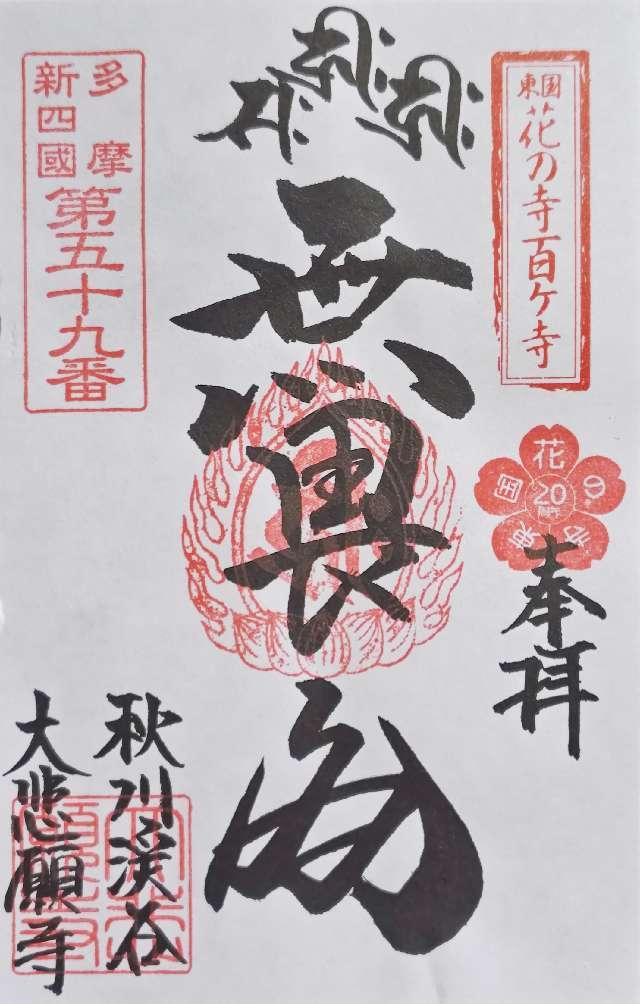 東国
花の寺百ケ寺
花の寺東国
20
奉拝
無畏
秋川渓谷
大悲願寺
多摩
新四國
第五十九番